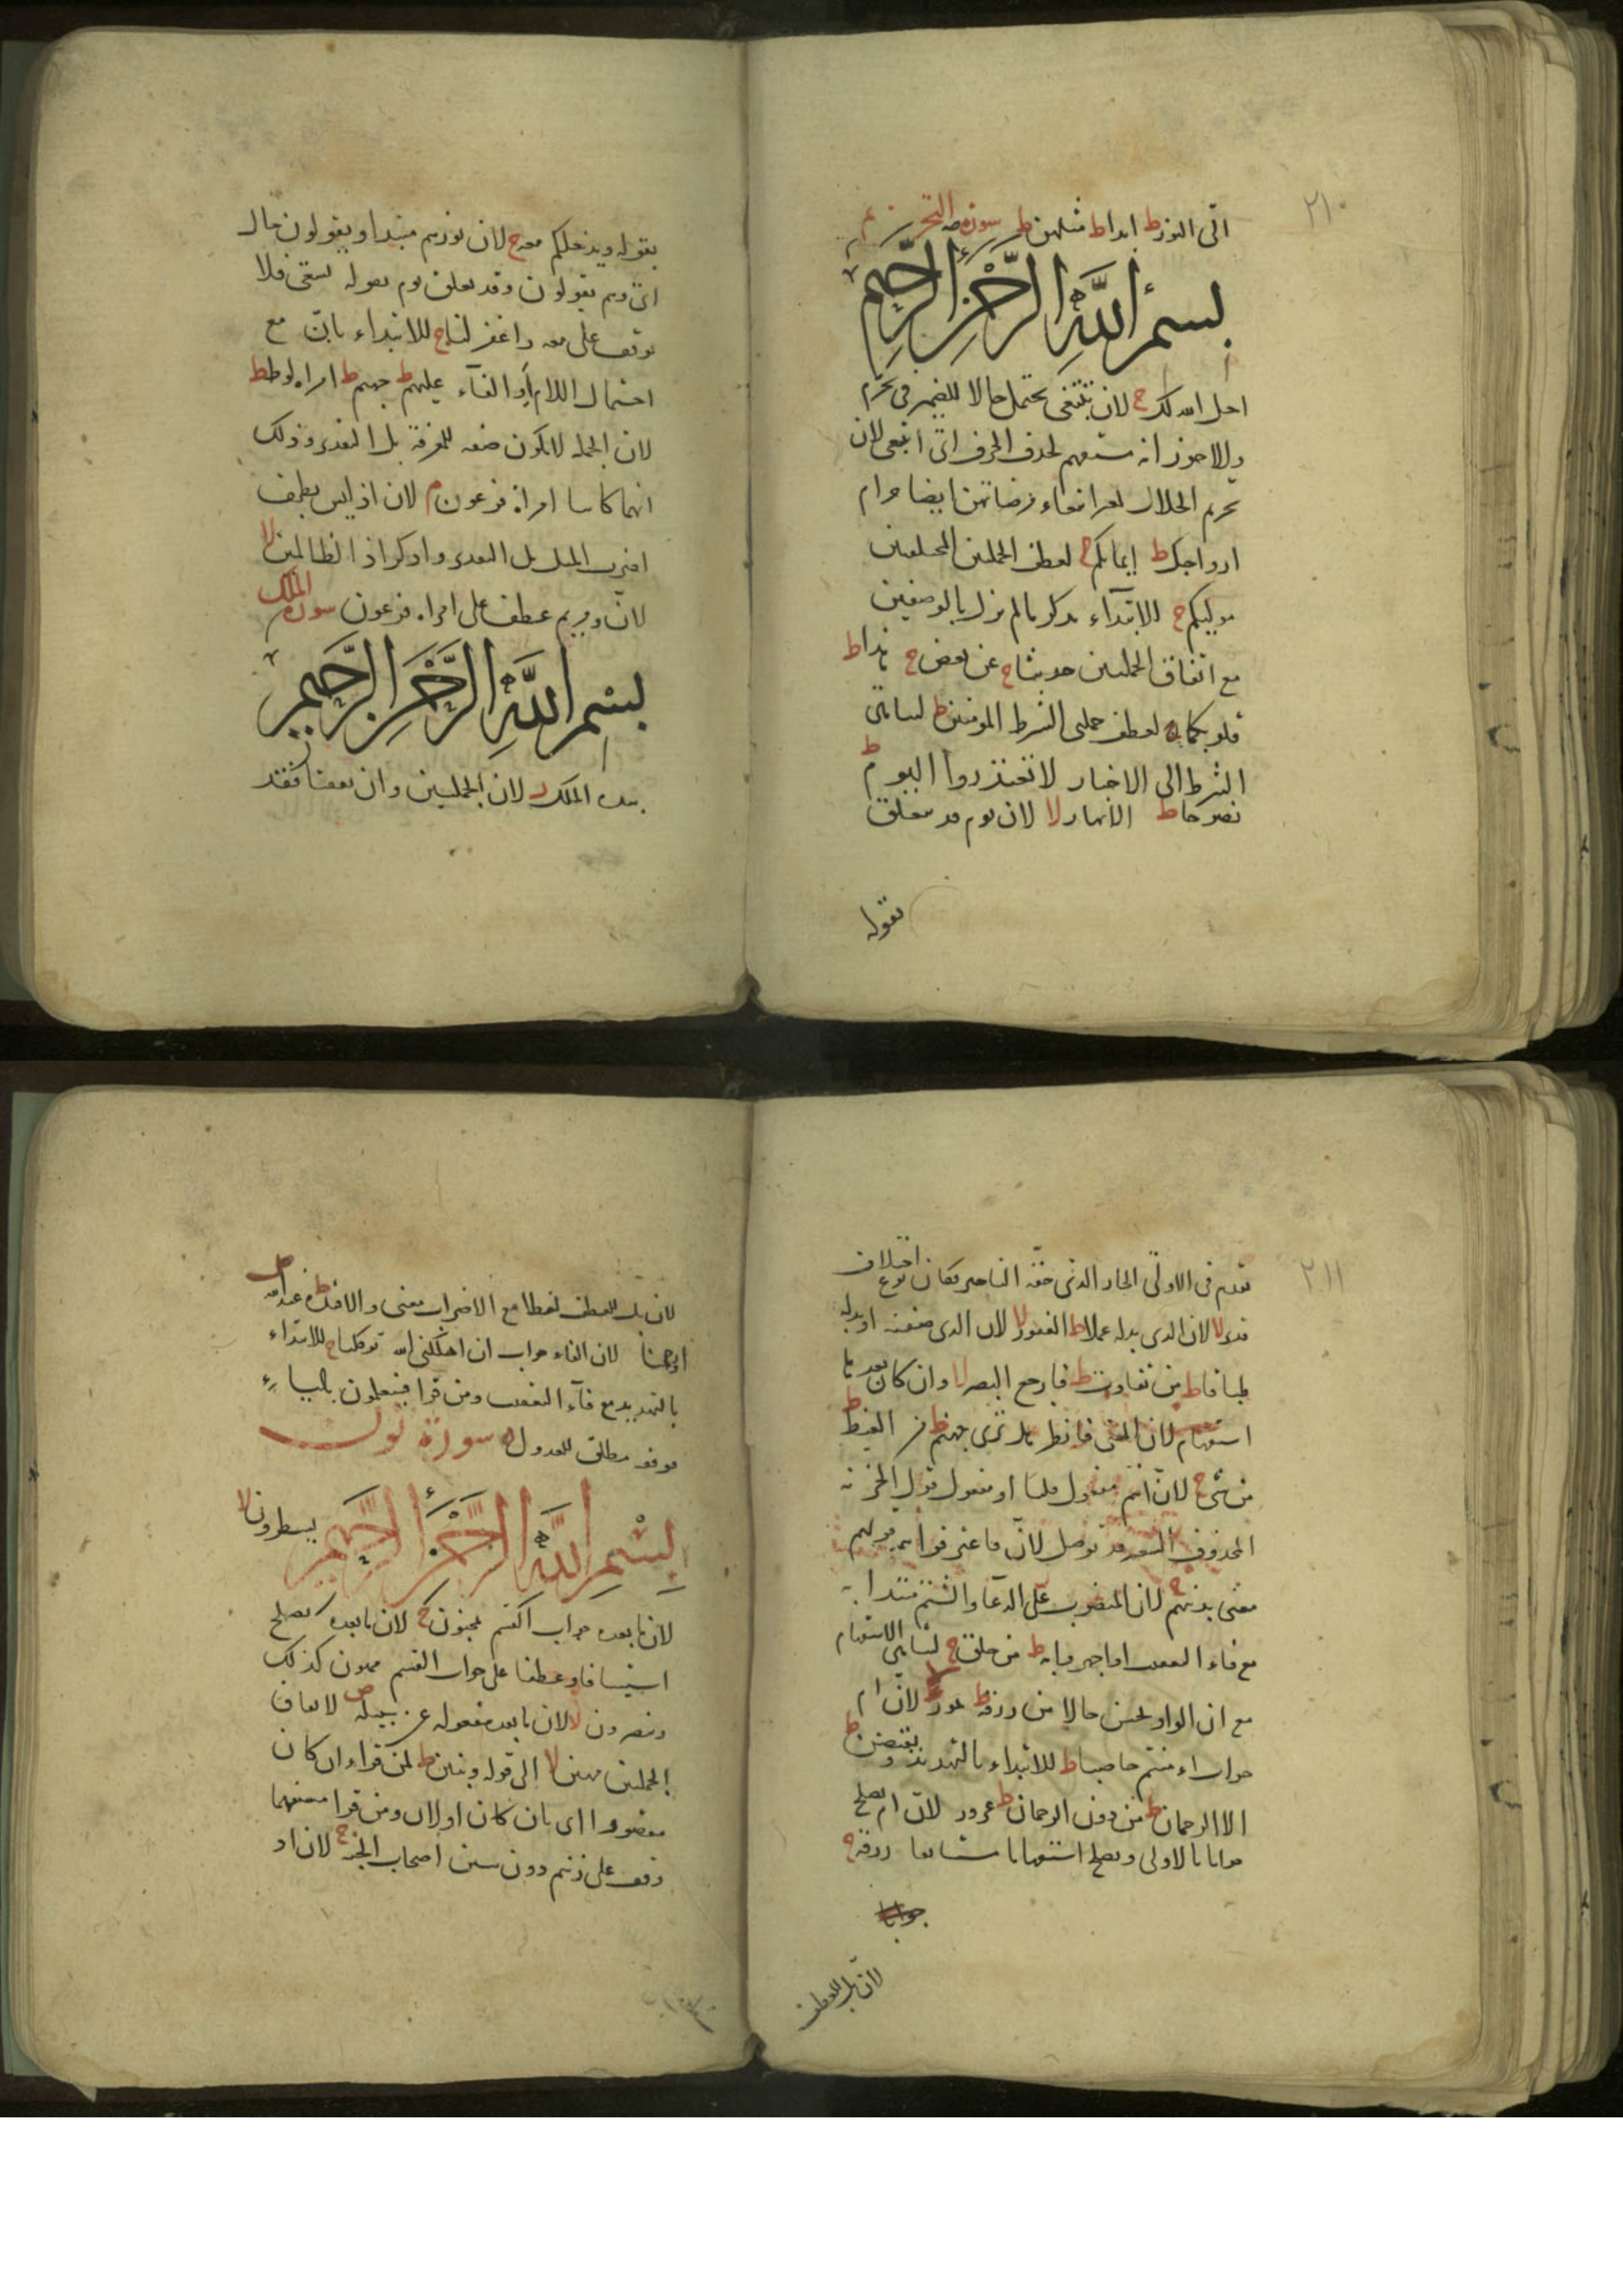 ٢١٠
الى النور ط ابدا ط مثلهن ط سورة التحريم
بسم الله الرحمن الرحيم
احل الله لك ج لان تبتغى يحتمل حالا للضمير فى تحرم
والاجوز انه مستفهم لحذف الحرف اى اتبغى لان
تحريم الحلال لغير ابتغاء مرضاتهن ايضا حرام
ازواجك ط ايمانكم ج لعطف الجملتين المختلفتين
موليكم ج للابتداء بذكر ما لم يزل بالوصفين
مع اتفاق الجملتين حديثا ج عن بعض ج هذا ط
قلوبكما ج لعطف جملتى الشرط المؤمنين ط لتناهى
الشرط الى الاخبار لا تعتذروا اليوم ط
نصوحا ط الانهار لا لان يوم قد يتعلق
بقوله
بقوله ويدخلكم معه ج لان نورهم مبتدا ويقولون حال
اى وهم يقولون وقد يتعلق يوم بقوله يسعى فلا
توقف على معه واغفر لنا ج للابتداء بان مع
احتمال اللام او الفاء عليهم ط جهنم ط امراة لوط ط
لان الجملة لا تكون صفة للمعرفة بل التقدير وذلك
انهما كانتا امراة فرعون م لان اذ ليس بظرف
لضرب المثل بل التقدير واذكر اذ الظالمين لا
لان ومريم عطف على امراة فرعون سورة الملك
بسم الله الرحمن الرحيم
بيده الملك ز لان الجملتين وان اتفقتا فقد
٢١١
تقدم فى الاولى الجار الذى حقه التاخير فكان نوع اختلاف
قدير لا لان الذى بدله عملا ط الغفور لا لان الذى صفته او بدله
طباقا ط من تفاوت ط فارجع البصر لا وان كان بعد ما
استفهام لان المعنى فانظر هل ترى جهنم ط من الغيظ ط
من شئ ج لان انتم مفعول قلنا او مفعول قول الخزنة
المحذوف السعير قد توصل لان فاعترفوا
معنى بذنبهم ج لان المنصوب على الدعاء والشتم مبتدا به
مع فاء التعقيب او اجهروا به ط من خلق ج لتناهى الاستفهام
مع ان الواو يحسن حالا من رزقه ط لان ام
جواب ءامنتم حاصبا ط للابتداء بالتهديد ويقبضن ط
الا الرحمان ط من دون الرحمان ط غرور لان ام يصلح
جوابا بالاولى ويصلح استفهاما رزقه ج
جوابا
لان بل للعطف
لان بل للعطف لفظا مع الاضراب معنى والافئدة ط عند الله ص
اورحمنا لان الفاء جواب ان اهلكنى الله توكلنا ج للابتداء
بالتهديد مع فاء التعقيب ومن قرا فسيعلمون بالياء
فوقفه مطلق للعدول ه سورة نون
بسم الله الرحمن الرحيم يسطرون لا
لان ما بعده جواب القسم بمجنون ج لان ما بعده يصلح
استينافا وعطفا على جواب القسم ممنون كذلك
ويبصرون لا لان ما بعده مفعوله عن سبيله ص لاتفاق
الجملتين مهين لا الى قوله وبنين ط لمن قراء ان كان
مقصورا اى بان كان اولان ومن قرا مستفهما
وقف على زنيم دون بنين اصحاب الجنة ج لان اذ